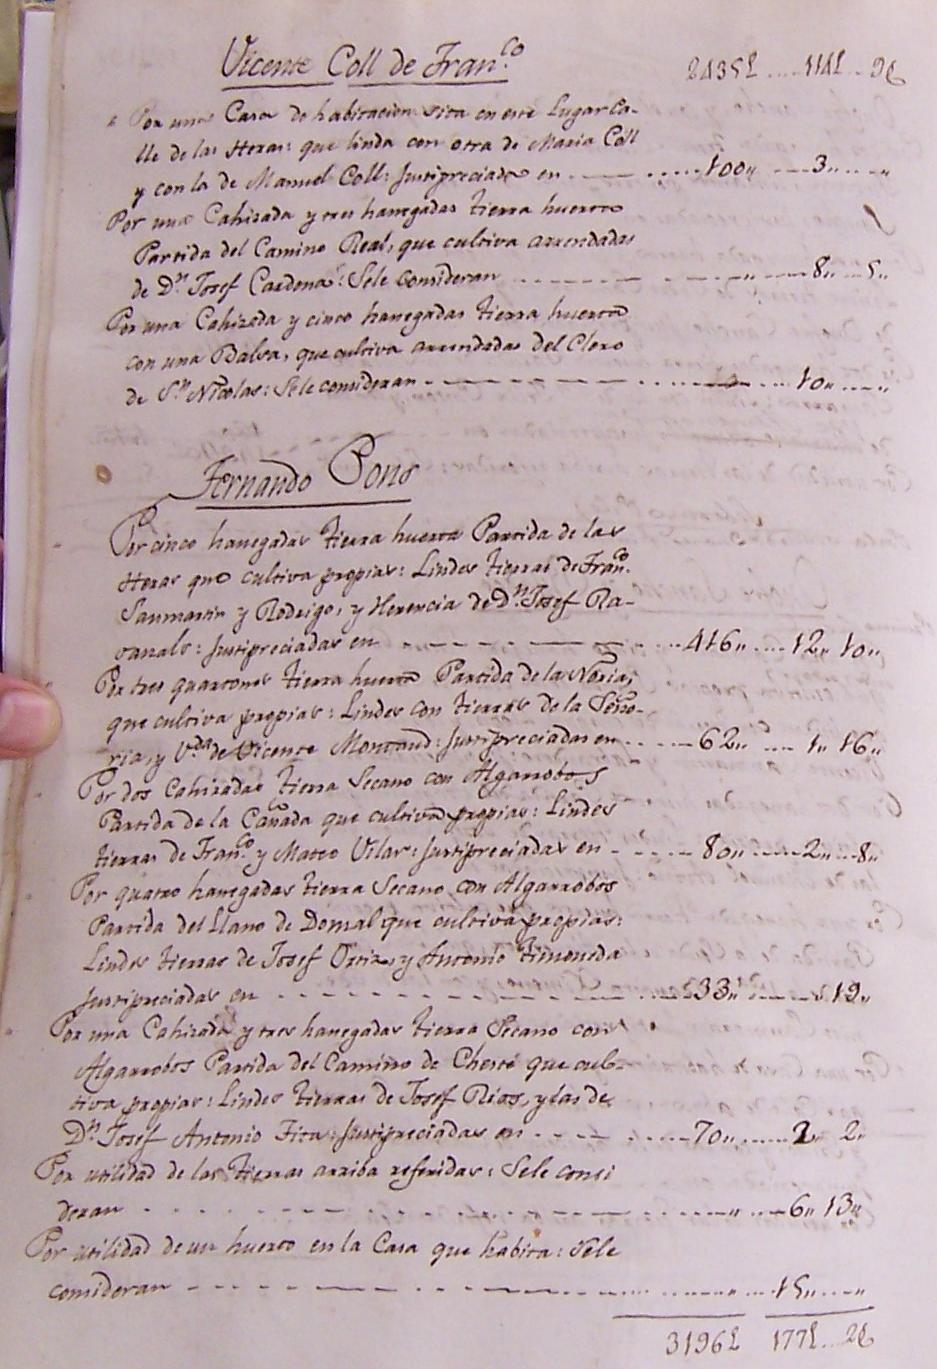 Vicente Coll de Fran.co 2435£ .... 114£ .. 9₰
Por una Casa de habitacion sita en este Lugar Ca-
lle de las Heras: que linda con otra de Maria Coll
y con la de Manuel Coll: Justipreciada en ---- 100,, ---- 3,, .... ,,
Por una Cahizada y tres hanegadas tierra huerta
Partida del Camino Real, que cultiva arrendadas
de Dn. Josef Cardona: Sele consideran ---- ,, ---- 8,, ... 5,,
Por una Cahizada y cinco hanegadas tierra huerta
con una Balsa, que cultiva arrendadas del Clero
de Sn. Nicolas: Sele consideran ---- 10,, .... ,,
Fernando Pons
Por cinco hanegadas tierra huerta Partida de las
Heras que cultiva propias: Lindes tierras de Fran.co
Sanmartin y Rodrigo, y Herencia de Dn. Josef Ra-
vanals: Justipreciadas en ---- 416,, .... 12,, 10,,
Por tres quartones tierra huerta Partida de las Norias,
que cultiva propias: Lindes con tierras de la Seño-
ria, y Vda. de Vicente Montaud: Justipreciadas en ---- 62,, .... 1,, 16,,
Por dos Cahizadas tierra Secano con Algarrobos
Partida de la Cañada que cultiva propias: Lindes
tierras de Fran.co y Mateo Vilar: Justipreciadas en ---- 80,, ---- 2,, ... 8,,
Por quatro hanegadas tierra Secano con Algarrobos
Partida del Llano de Domal que cultiva propias:
Lindes tierras de Josef Ortiz, y Antonio Timoneda
Justipreciadas en ---- 33,, ---- 19,,
Por una Cahizada y tres hanegadas tierra Secano con
Algarrobos Partida del Camino de Cheste que cul-
tiva propias: Lindes tierras de Josef Rios, y las de
Dn. Josef Antonio Fita: Justipreciadas en ---- 70,, .... 2,, 2,,
Por utilidad de las tierras arriba referidas: Sele consi
deran ---- ,, ---- 6,, 13,,
Por utilidad de un huerto en la Casa que habita: Sele
consideran ---- ,, ... 15,, .... ,,
3196£ 177£ .. 2₰